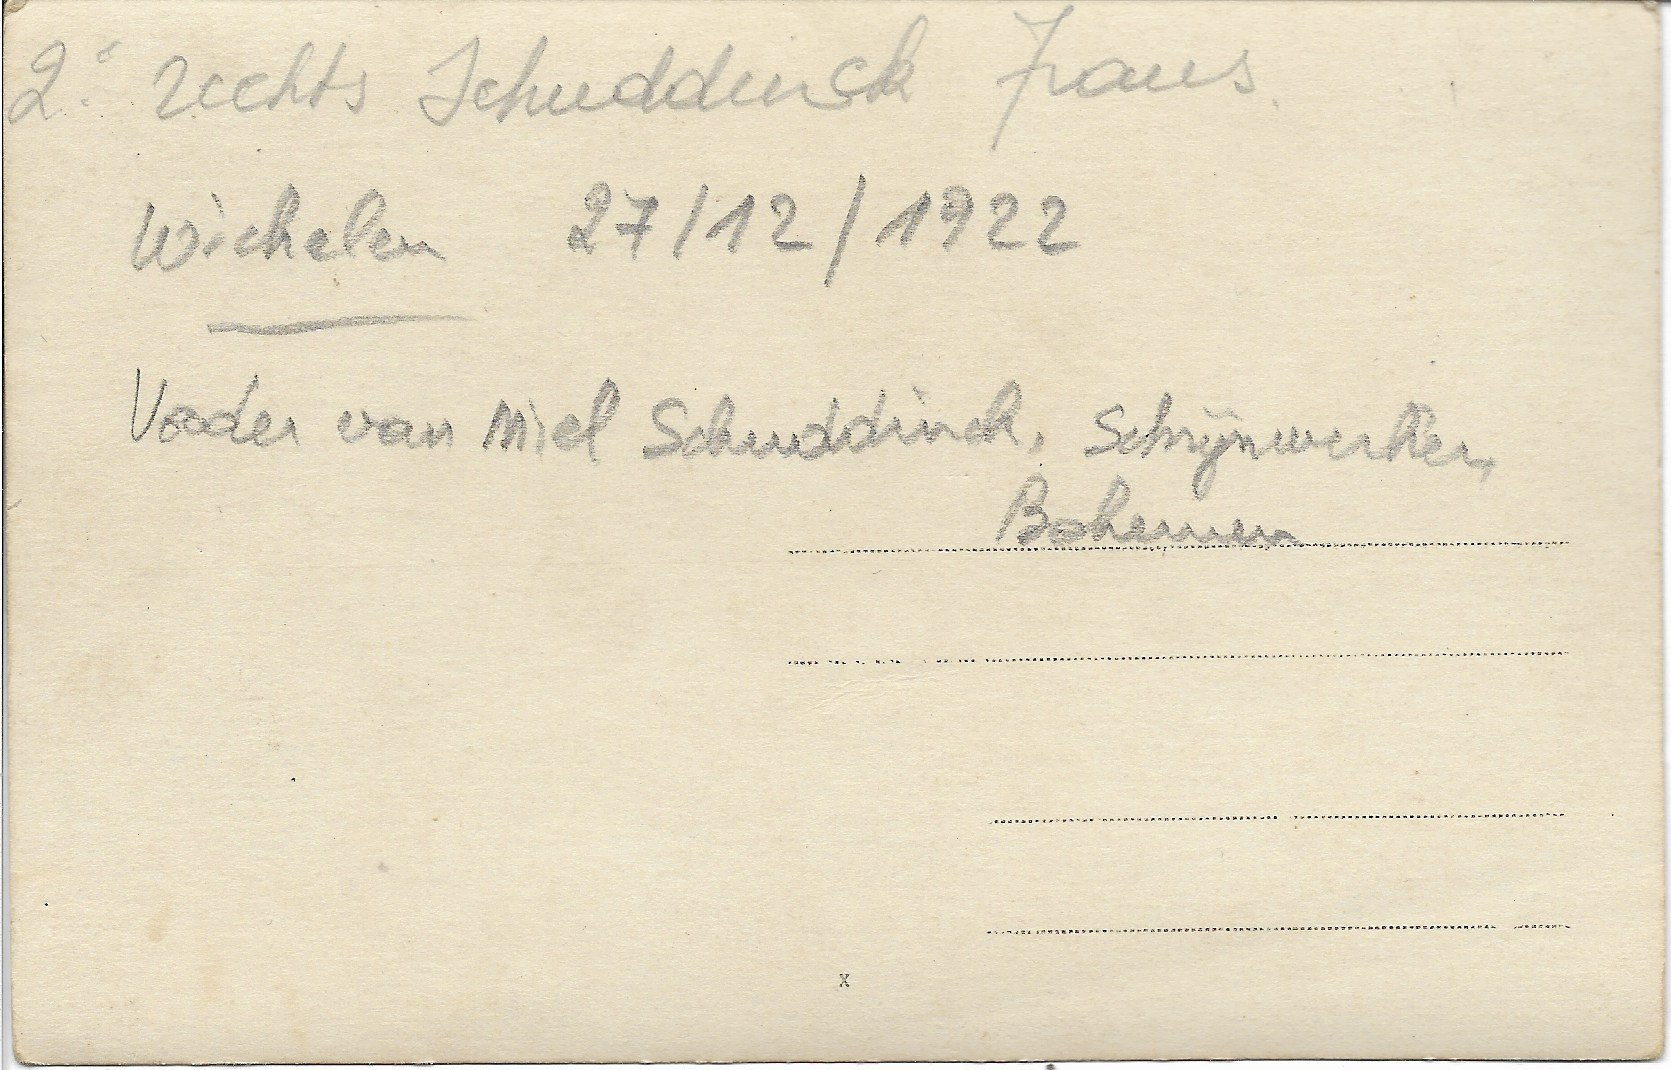 2e rechts Schuddinck Frans.
Wichelen 27/12/1922
Vader van Miel Schuddinck, Schrijnwerker,
Bohemen
X